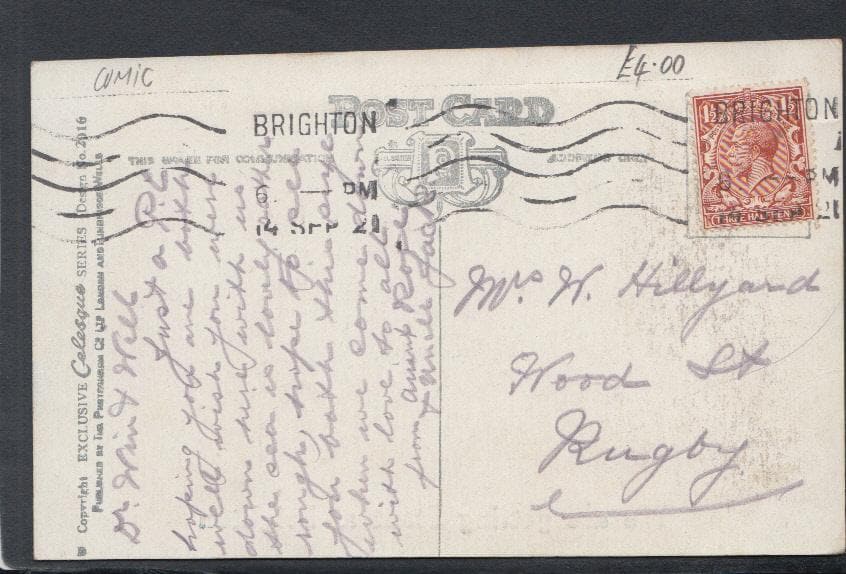 COMIC
£4.00
POST CARD
BRIGHTON
6 — PM
14 SEP 21
BRIGHTON
PM
21
THREE HALFPENCE
Copyright EXCLUSIVE Celesque SERIES Design No. 2016
PUBLISHED BY THE PHOTOCHROM CO LTD LONDON AND TUNBRIDGE WELLS
Dr Win & Will
Just a P.C
hoping you are both
well wish you were
down here with us
the sea is lovely &
rough, hope to see
you both this
when we come down
with love to all
from Aunt Rose
& Uncle Jack
Mrs W. Hillyard
Wood St
Rugby